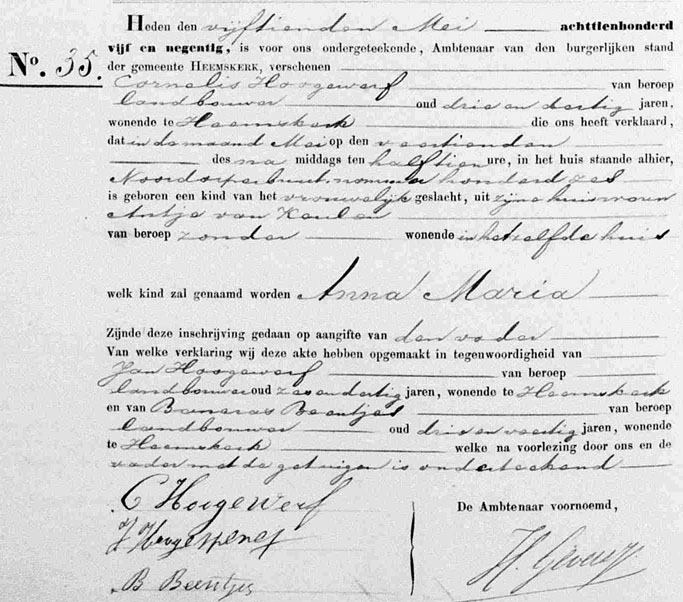 Heden den vijftienden Mei achttienhonderd
vijf en negentig, is voor ons ondergeteekende, Ambtenaar van den burgerlijken stand
der gemeente HEEMSKERK, verschenen
No. 35.
Cornelis Hoogewerf van beroep
landbouwer oud drie en dertig jaren,
wonende te Heemskerk die ons heeft verklaard,
dat in de maand Mei op den veertienden
des na middags ten half tien ure, in het huis staande alhier,
Noorddorperbuurt, nommer honderd zes
is geboren een kind van het vrouwelijk geslacht, uit zijne huisvrouw
Antje van
van beroep zonder wonende in hetzelfde huis
welk kind zal genaamd worden Anna Maria
Zijnde deze inschrijving gedaan op aangifte van den vader
Van welke verklaring wij deze akte hebben opgemaakt in tegenwoordigheid van
Jan Hoogewerf van beroep
landbouwer oud zes en dertig jaren, wonende te Heemskerk
en van Beentjes van beroep
landbouwer oud drie en veertig jaren, wonende
te Heemskerk welke na voorlezing door ons en de
vader met de getuigen is onderteekend
C Hoogewerf
De Ambtenaar voornoemd,
J Hoogewerf
B Beentjes